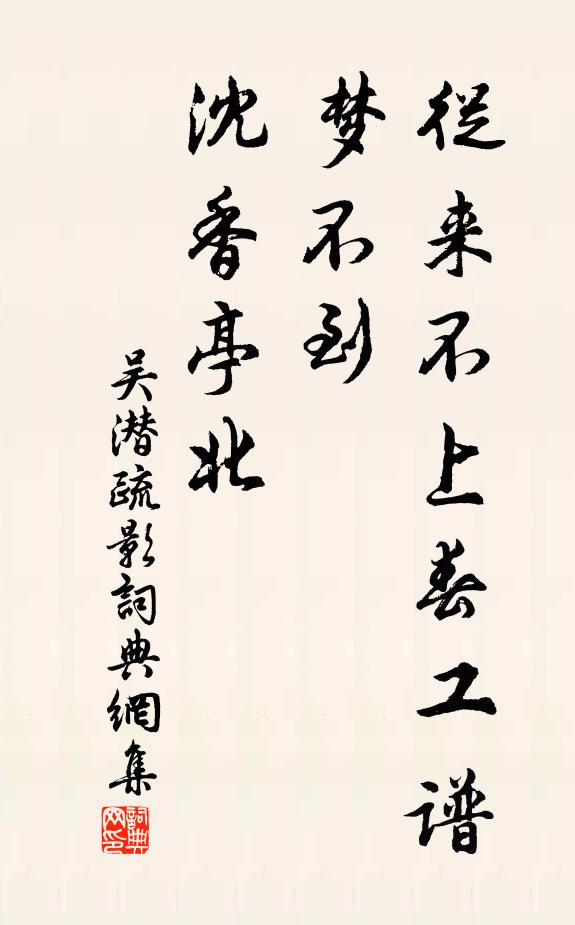 從来不上春工谱
梦不到
沈香亭北
吴潜疏影詞典網集
詞典網印